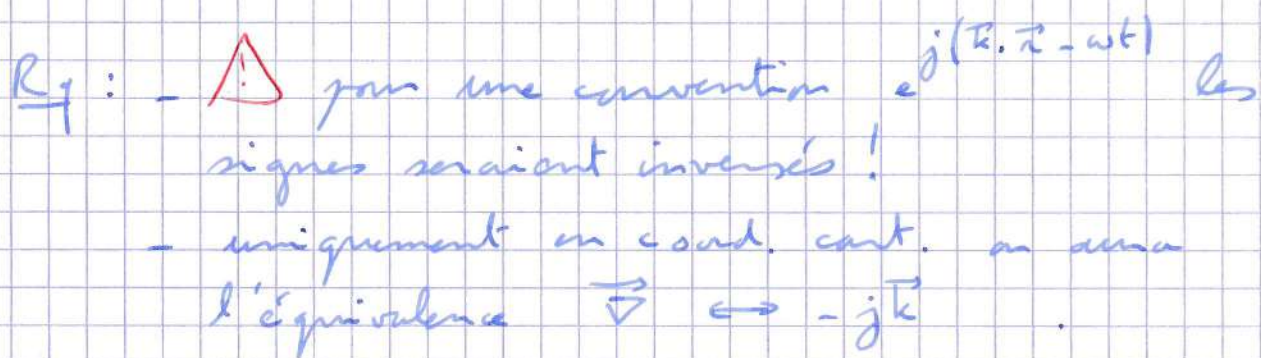 Rq : - ⚠ pour une convention e^{j(\vec{k}.\vec{r} - ωt)} les
signes seraient inversés !
- uniquement en coord. cart. on aura
l'équivalence \vec{∇} ↔ -j\vec{k} .